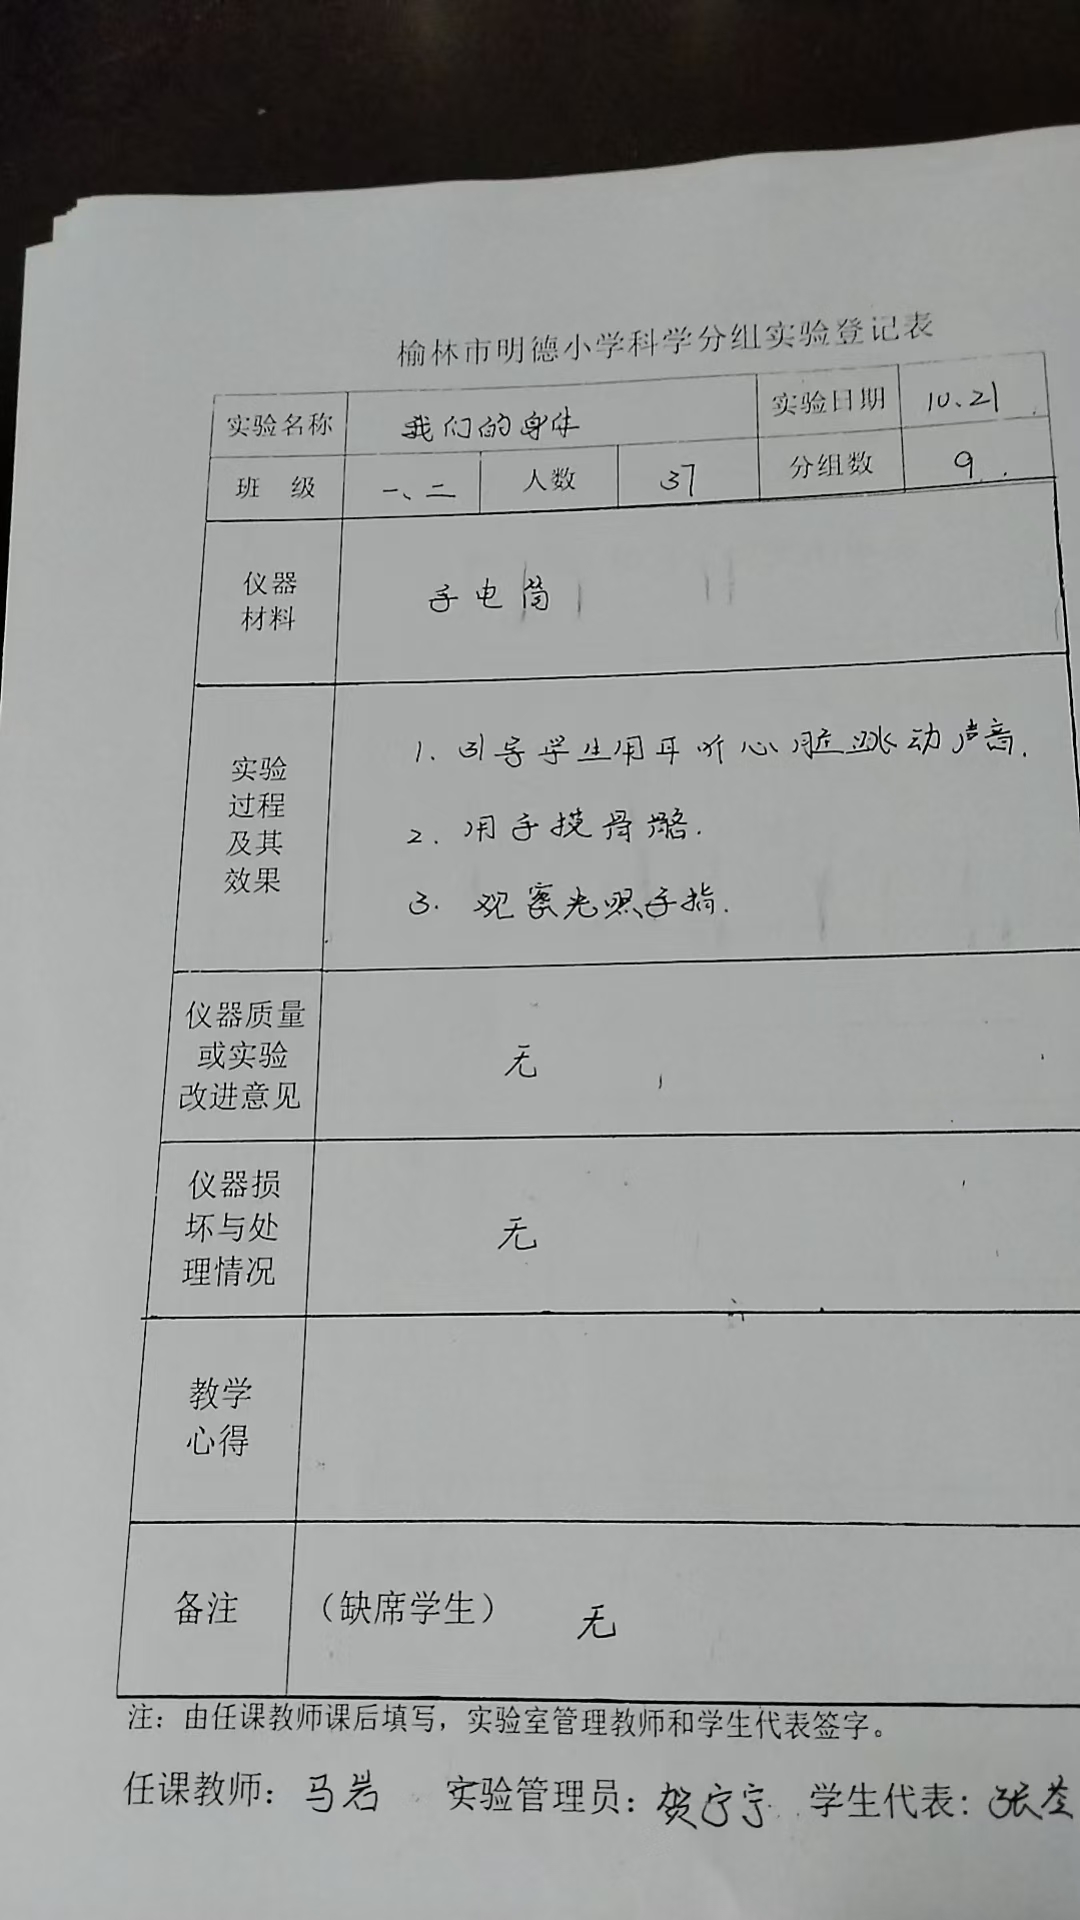 榆林市明德小学科学分组实验登记表
实验名称 我们的身体 实验日期 10.21
班 级 一、二 人数 37 分组数 9
仪器
材料
手电筒
实验
过程
及其
效果
1. 引导学生用耳听心脏跳动声音.
2. 用手摸骨骼.
3. 观察光照手指.
仪器质量
或实验
改进意见
无
仪器损
坏与处
理情况
无
教学
心得
备注 （缺席学生） 无
注：由任课教师课后填写，实验室管理教师和学生代表签字。
任课教师：马岩 实验管理员：贺宁宁 学生代表：张